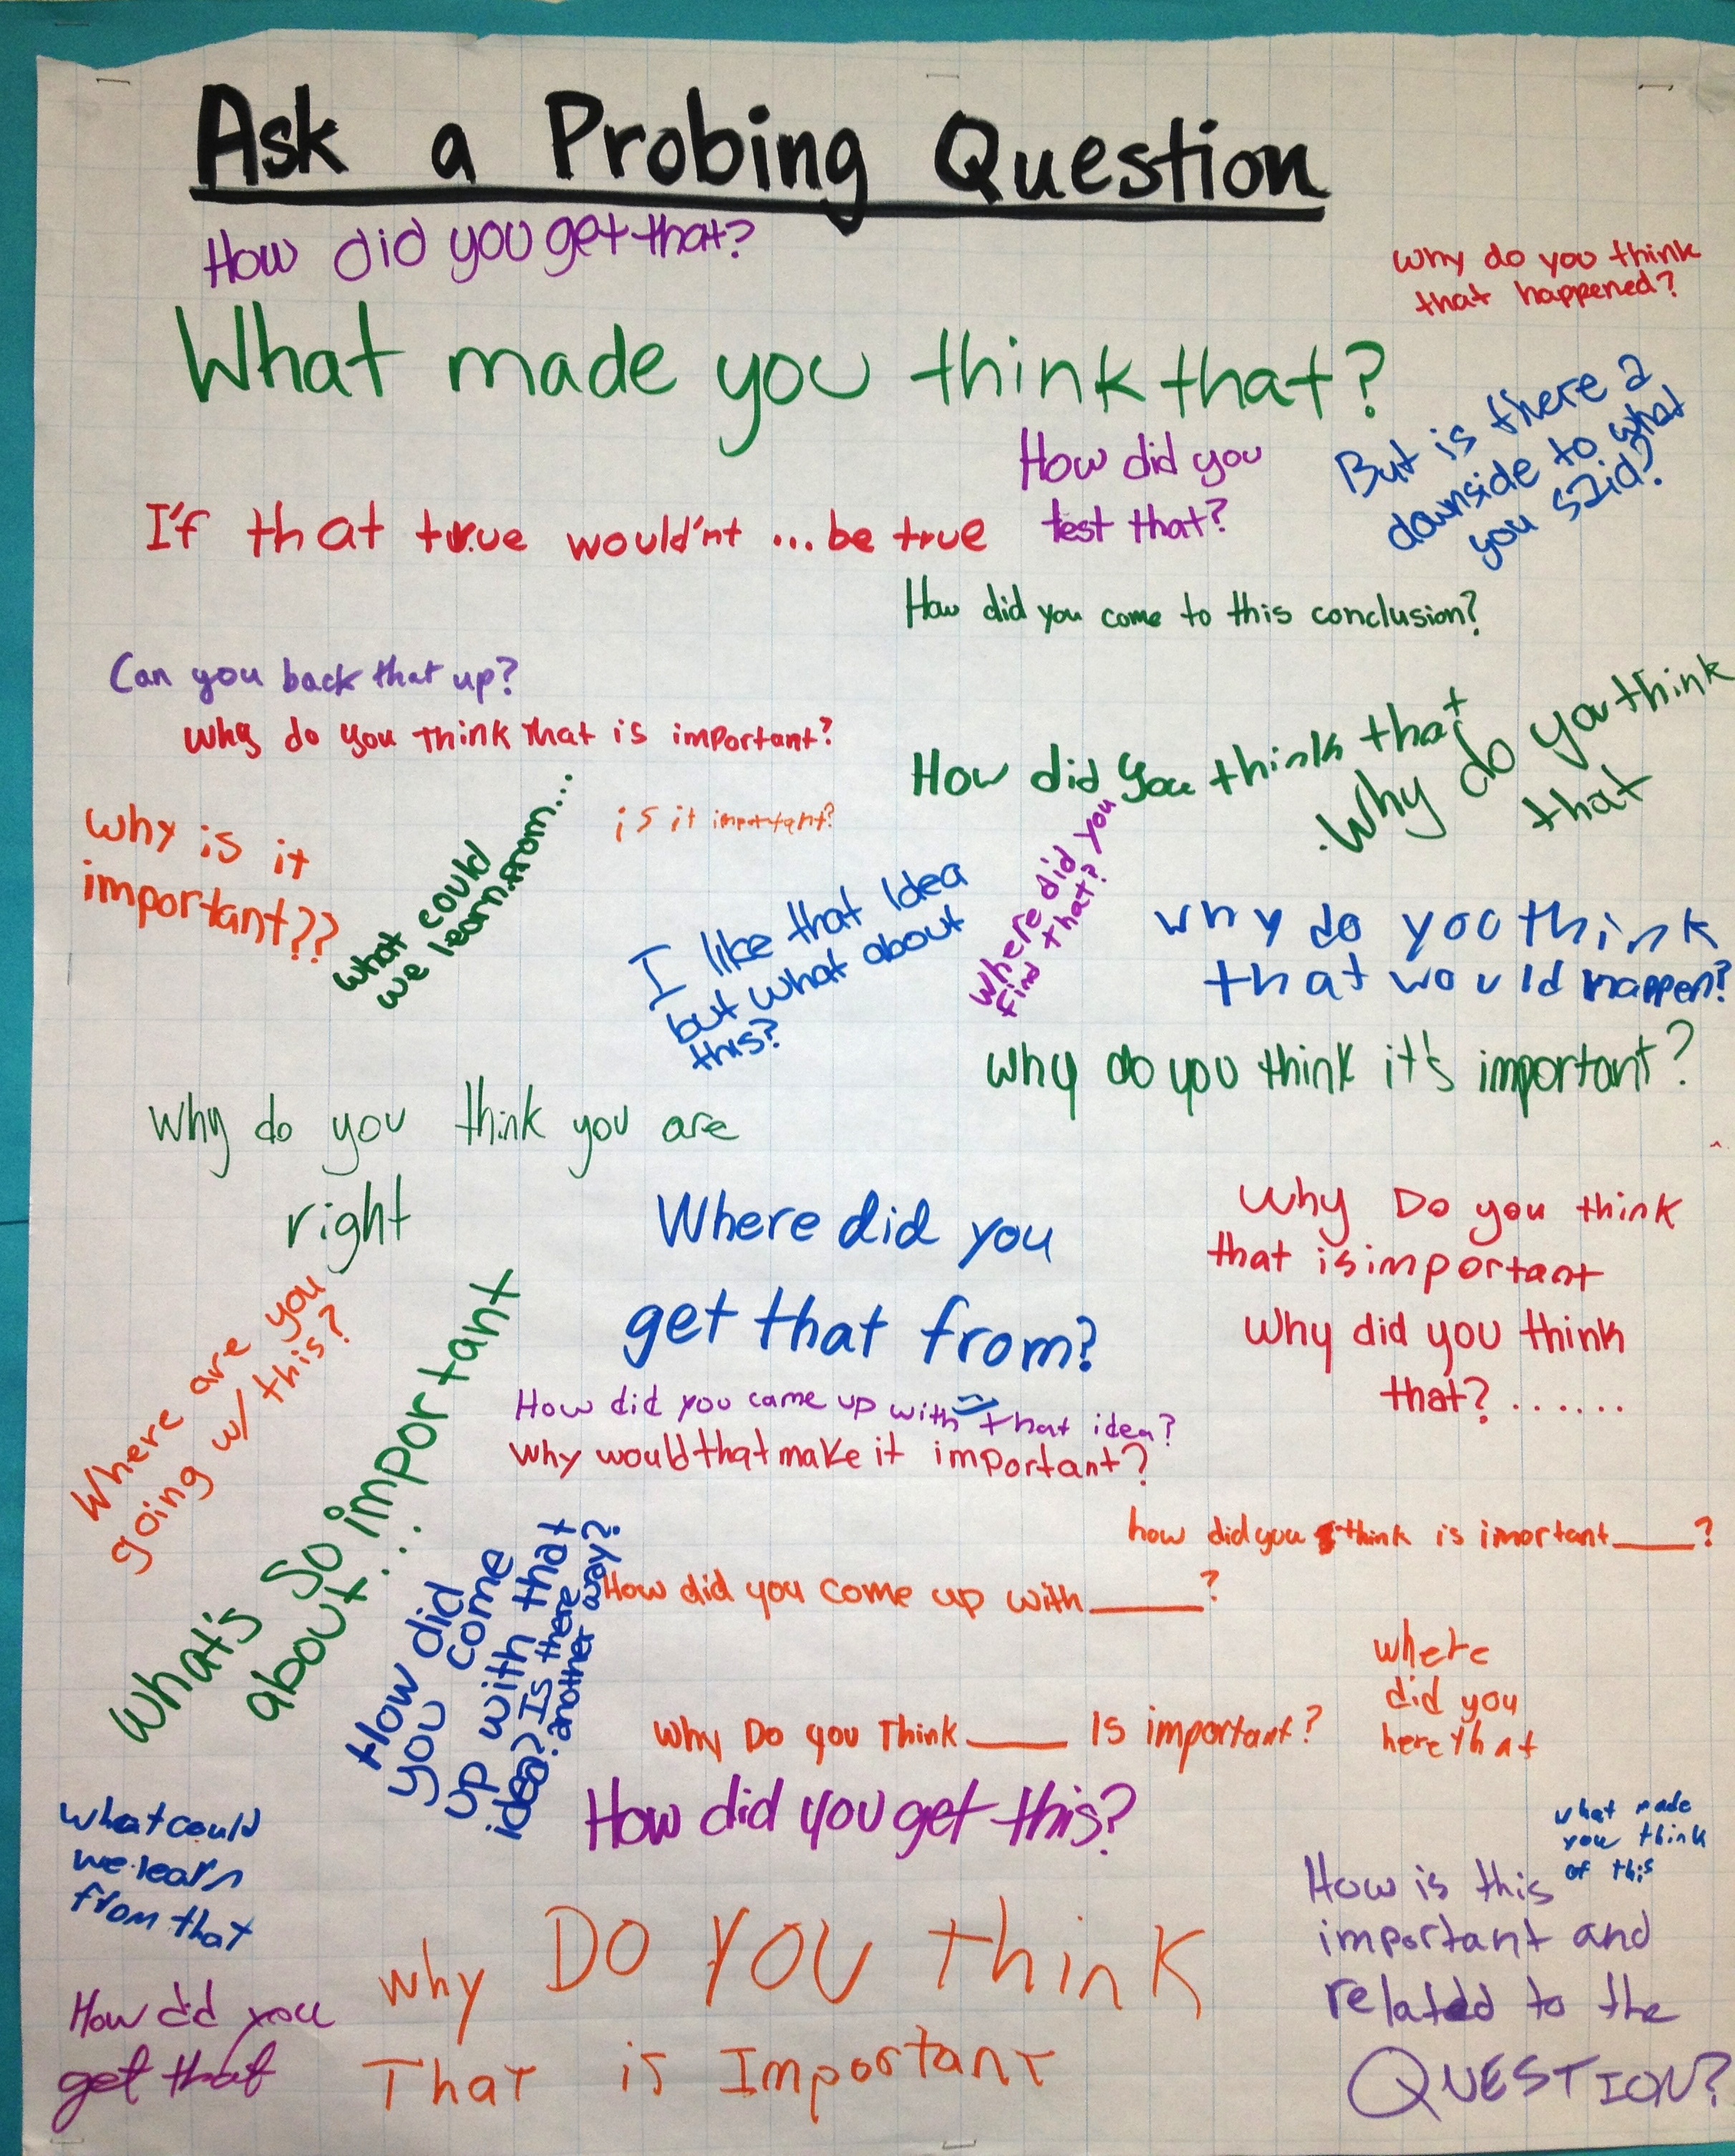 Ask a Probing Question
How did you get that?
Why do you think
that happened?
What made you think that?
But is there a
downside to what
you said?
How did you
test that?
I'f that true would'nt ... be true
How did you come to this conclusion?
Can you back that up?
Why do you think that is important?
How did you think that
.Why do you think
that
Why is it
important??
What could
we learn from...
is it important?
I like that Idea
but what about
this?
Where did you
find that?
why do you think
that would happen?
Why do you think it's important?
Why do you think you are
right
Where did you
get that from?
Why Do you think
that is important
Why did you think
that? ......
Where are you
going w/ this?
What's so important
about...
How did you came up with that idea?
Why would that make it important?
how did you think is imortant____?
How did you come up with____?
How did
you come
up with that
idea? Is there
another way?
where
did you
here that
Why Do you Think____ Is important?
How did you get this?
what could
we learn
from that
what made
you think
of this
How is this
important and
related to the
QUESTION?
Why DO YOU think
That is Important
How did you
get that